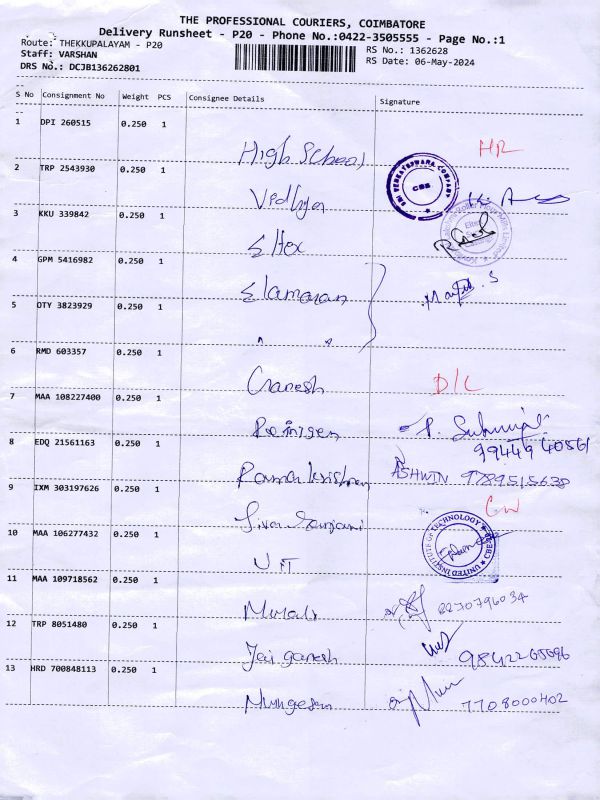 THE PROFESSIONAL COURIERS, COIMBATORE
Delivery Runsheet - P20 - Phone No.:0422-3505555 - Page No.:1
Route: THEKKUPALAYAM - P20
RS No.: 1362628
Staff: VARSHAN
RS Date: 06-May-2024
DRS No.: DCJB136262801
S No Consignment No Weight PCS Consignee Details Signature
1 DPI 260515 0.250 1
High School HR
2 TRP 2543930 0.250 1
Vidhya
SRI VENKATESHWARA COMPANY
CBE
3 KKU 339842 0.250 1
Eltex
4 GPM 5416982 0.250 1
Elamaran
5 OTY 3823929 0.250 1
" "
6 RMD 603357 0.250 1
Ganesh D/L
7 MAA 108227400 0.250 1
8 EDQ 21561163 0.250 1
Rama krishnan ASHWIN 9789515638
9 IXM 303197626 0.250 1
10 MAA 106277432 0.250 1
UIT
UNITED INSTITUTE OF TECHNOLOGY
11 MAA 109718562 0.250 1
Murali
12 TRP 8051480 0.250 1
Jai ganesh
13 HRD 700848113 0.250 1
Murugesan 7708000402